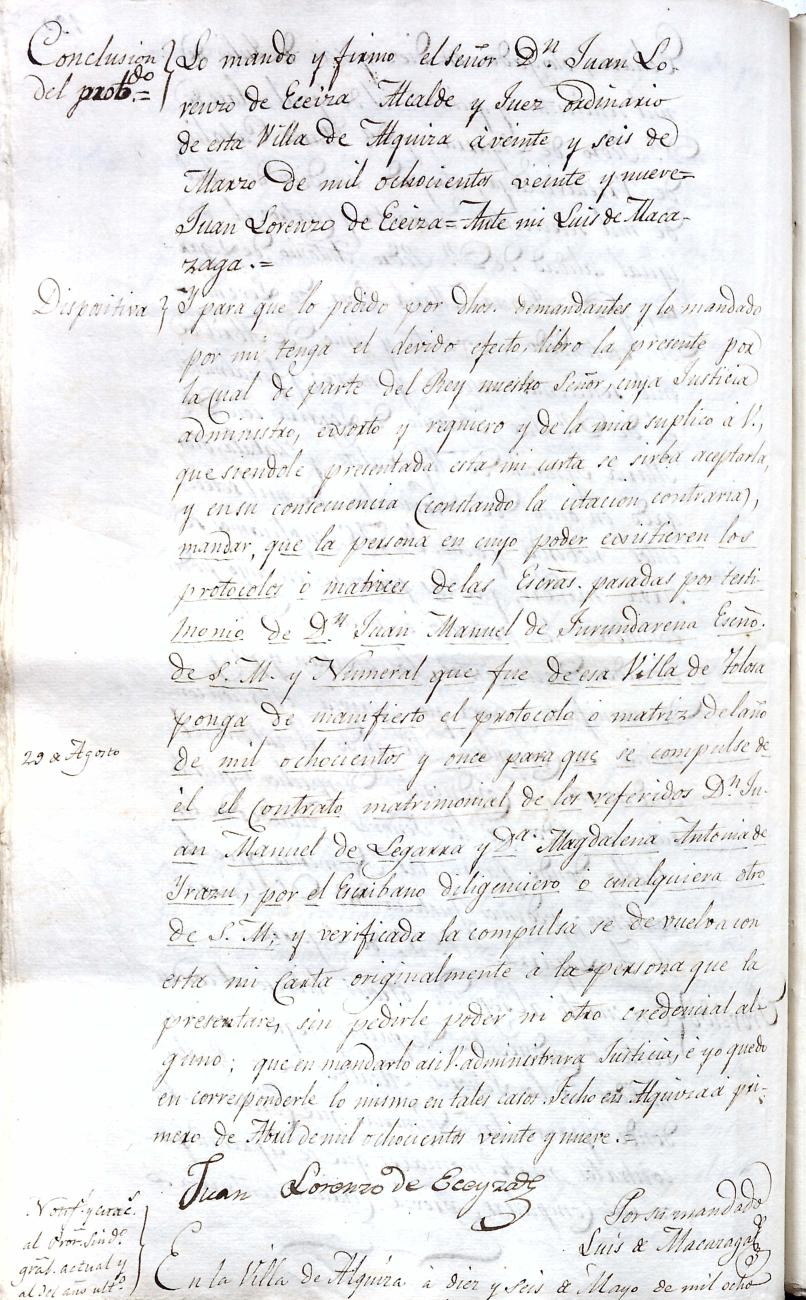 Conclusion
del prob.do=
Lo mando y firmo el señor Dn. Juan Lo-
renzo de Eceiza Alcalde y Juez ordinario
de esta Villa de Alquiza à veinte y seis de
Marzo de mil ochocientos veinte y nueve=
Juan Lorenzo de Eceiza=Ante mi Luis de Maca-
zaga.=
Dispositiva
Y para que lo pedido por dhos. demandantes y lo mandado
por mi tenga el devido efecto, libro la presente por
la cual de parte del Rey nuestro Señor, cuya Justicia
administro, exsorto y requiero y de la mia suplico à V.,
que siendole presentada esta mi carta se sirba aceptarla,
y en su consecuencia (constando la citacion contraria),
mandar, que la persona en cuyo poder existieren los
protocolos ò matrices de las Escras. pasadas por testi-
monio de Dn. Juan Manuel de Furundarena Esno.
de S. M. y Numeral que fue de esa Villa de Tolosa
ponga de manifiesto el protocolo ò matriz del año
29 de Agosto
de mil ochocientos y once para que se compulse de
èl el contrato matrimonial de los referidos Dn. Ju-
an Manuel de Legarra y Da. Magdalena Antonia de
Yrazu, por el Escribano diligenciero ò cualquiera otro
de S. M; y verificada la compulsa se de vuelva con
esta mi Carta originalmente à la persona que la
presentare, sin pedirle poder ni otro credencial al-
guno; que en mandarlo asi V. administrara Justicia, è yo quedo
en corresponderle lo mismo en tales casos. Fecho en Alquiza à pri-
mero de Abril de mil ochocientos veinte y nueve.=
Juan Lorenzo de Eceyza
Por su mandado
Luis de Macazaga
Notifn. y citac.
al Pror. Sindo.
gral. actual y
al del año ulto.
En la Villa de Alquiza à diez y seis de Mayo de mil ocho